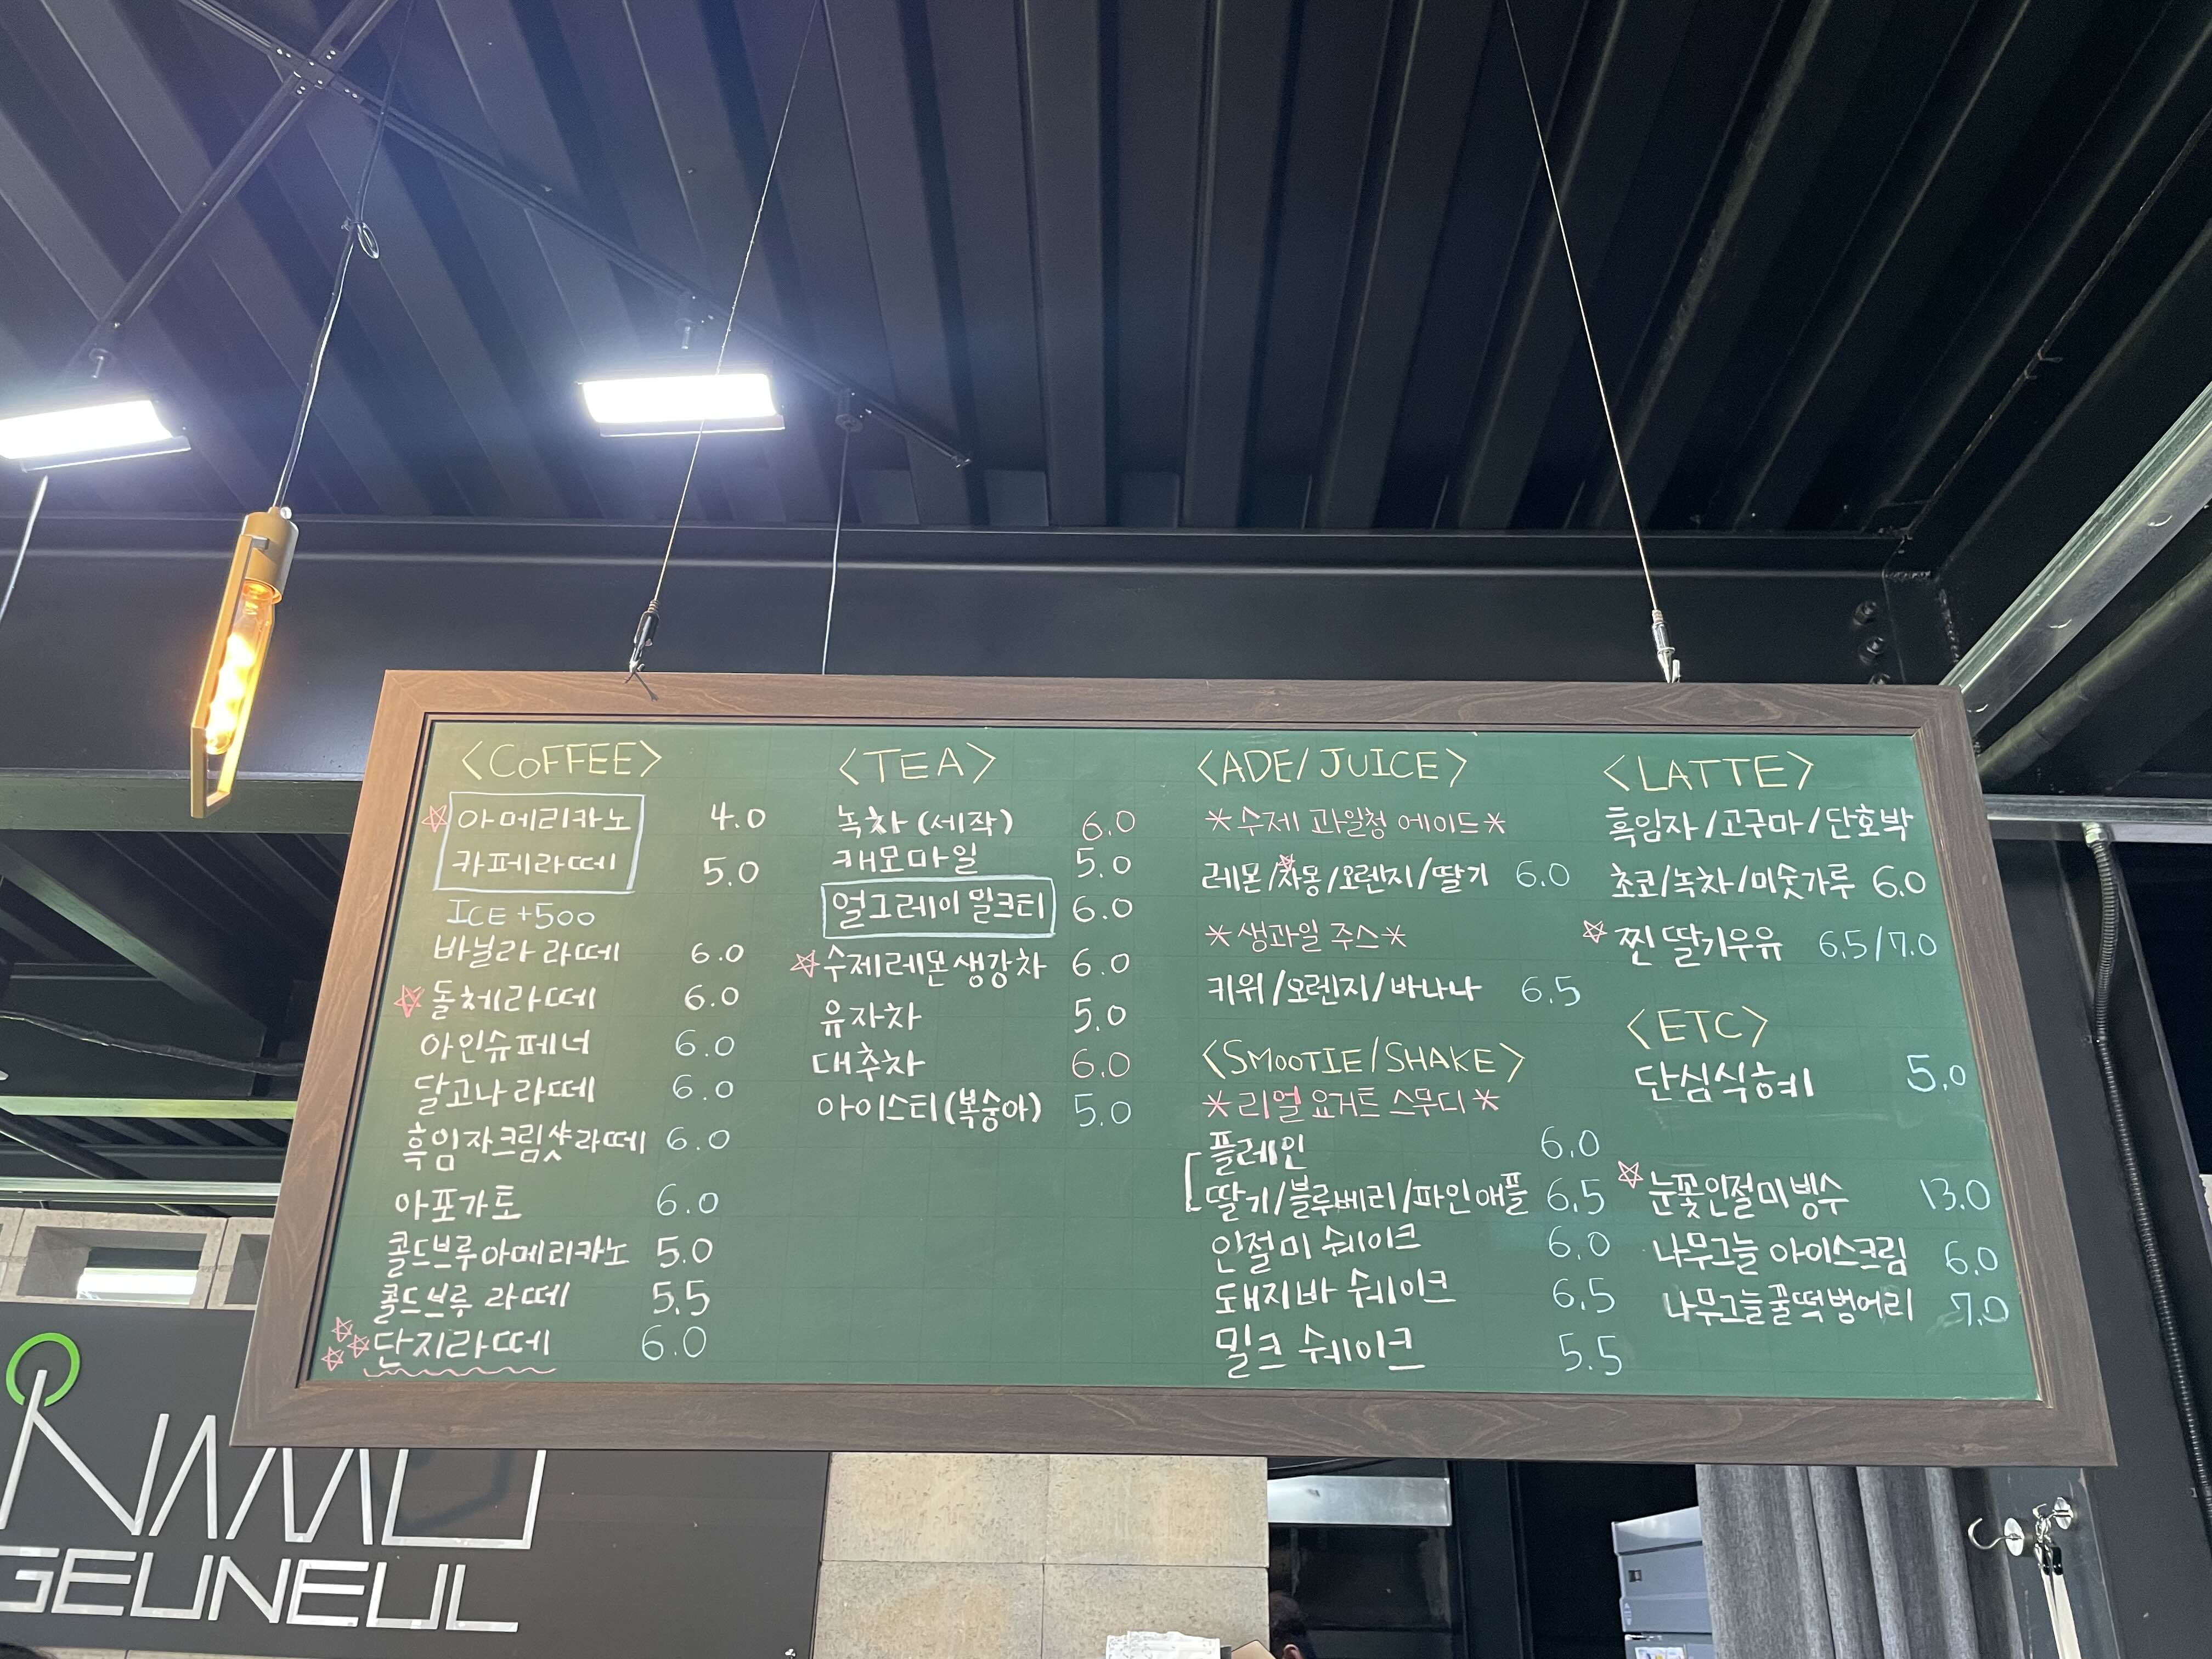 <COFFEE>
아메리카노 4.0
카페라떼 5.0
ICE +500
바닐라 라떼 6.0
돌체라떼 6.0
아인슈페너 6.0
달고나 라떼 6.0
흑임자크림샷라떼 6.0
아포가토 6.0
콜드브루아메리카노 5.0
콜드브릉 라떼 5.5
단지라떼 6.0
<TEA>
녹차 (세작) 6.0
캐모마일 5.0
얼그레이 밀크티 6.0
수제레몬생강차 6.0
유자차 5.0
대추차 6.0
아이스티(복숭아) 5.0
<ADE/JUICE>
*수제 과일청 에이드*
레몬/자몽/오렌지/딸기 6.0
*생과일 주스*
키위/오렌지/바나나 6.5
<SMOOTIE/SHAKE>
*리얼 요거트 스무디*
플레인 6.0
딸기/블루베리/파인애플 6.5
인절미 쉐이크 6.0
돼지바 쉐이크 6.5
밀크 쉐이크 5.5
<LATTE>
흑임자/고구마/단호박
초코/녹차/미숫가루 6.0
찐 딸기우유 6.5/7.0
<ETC>
단심식혜 5.0
눈꽃인절미빙수 13.0
나무그늘 아이스크림 6.0
나무그늘꿀떡범어리 7.0
NAMU
GEUNEUL